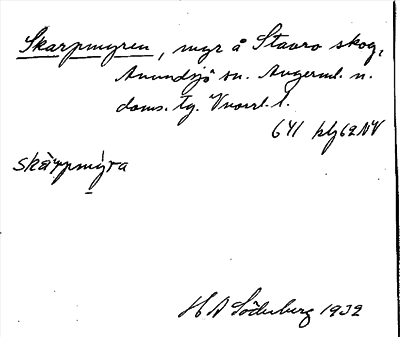 Skarpmyren, myr å Stavro skog,
Anundsjö sn. Ångerml. n.
doms. tg. Vnorrl. l.
641 klj 62 NV
skàrpmýra
H A Söderberg 1932